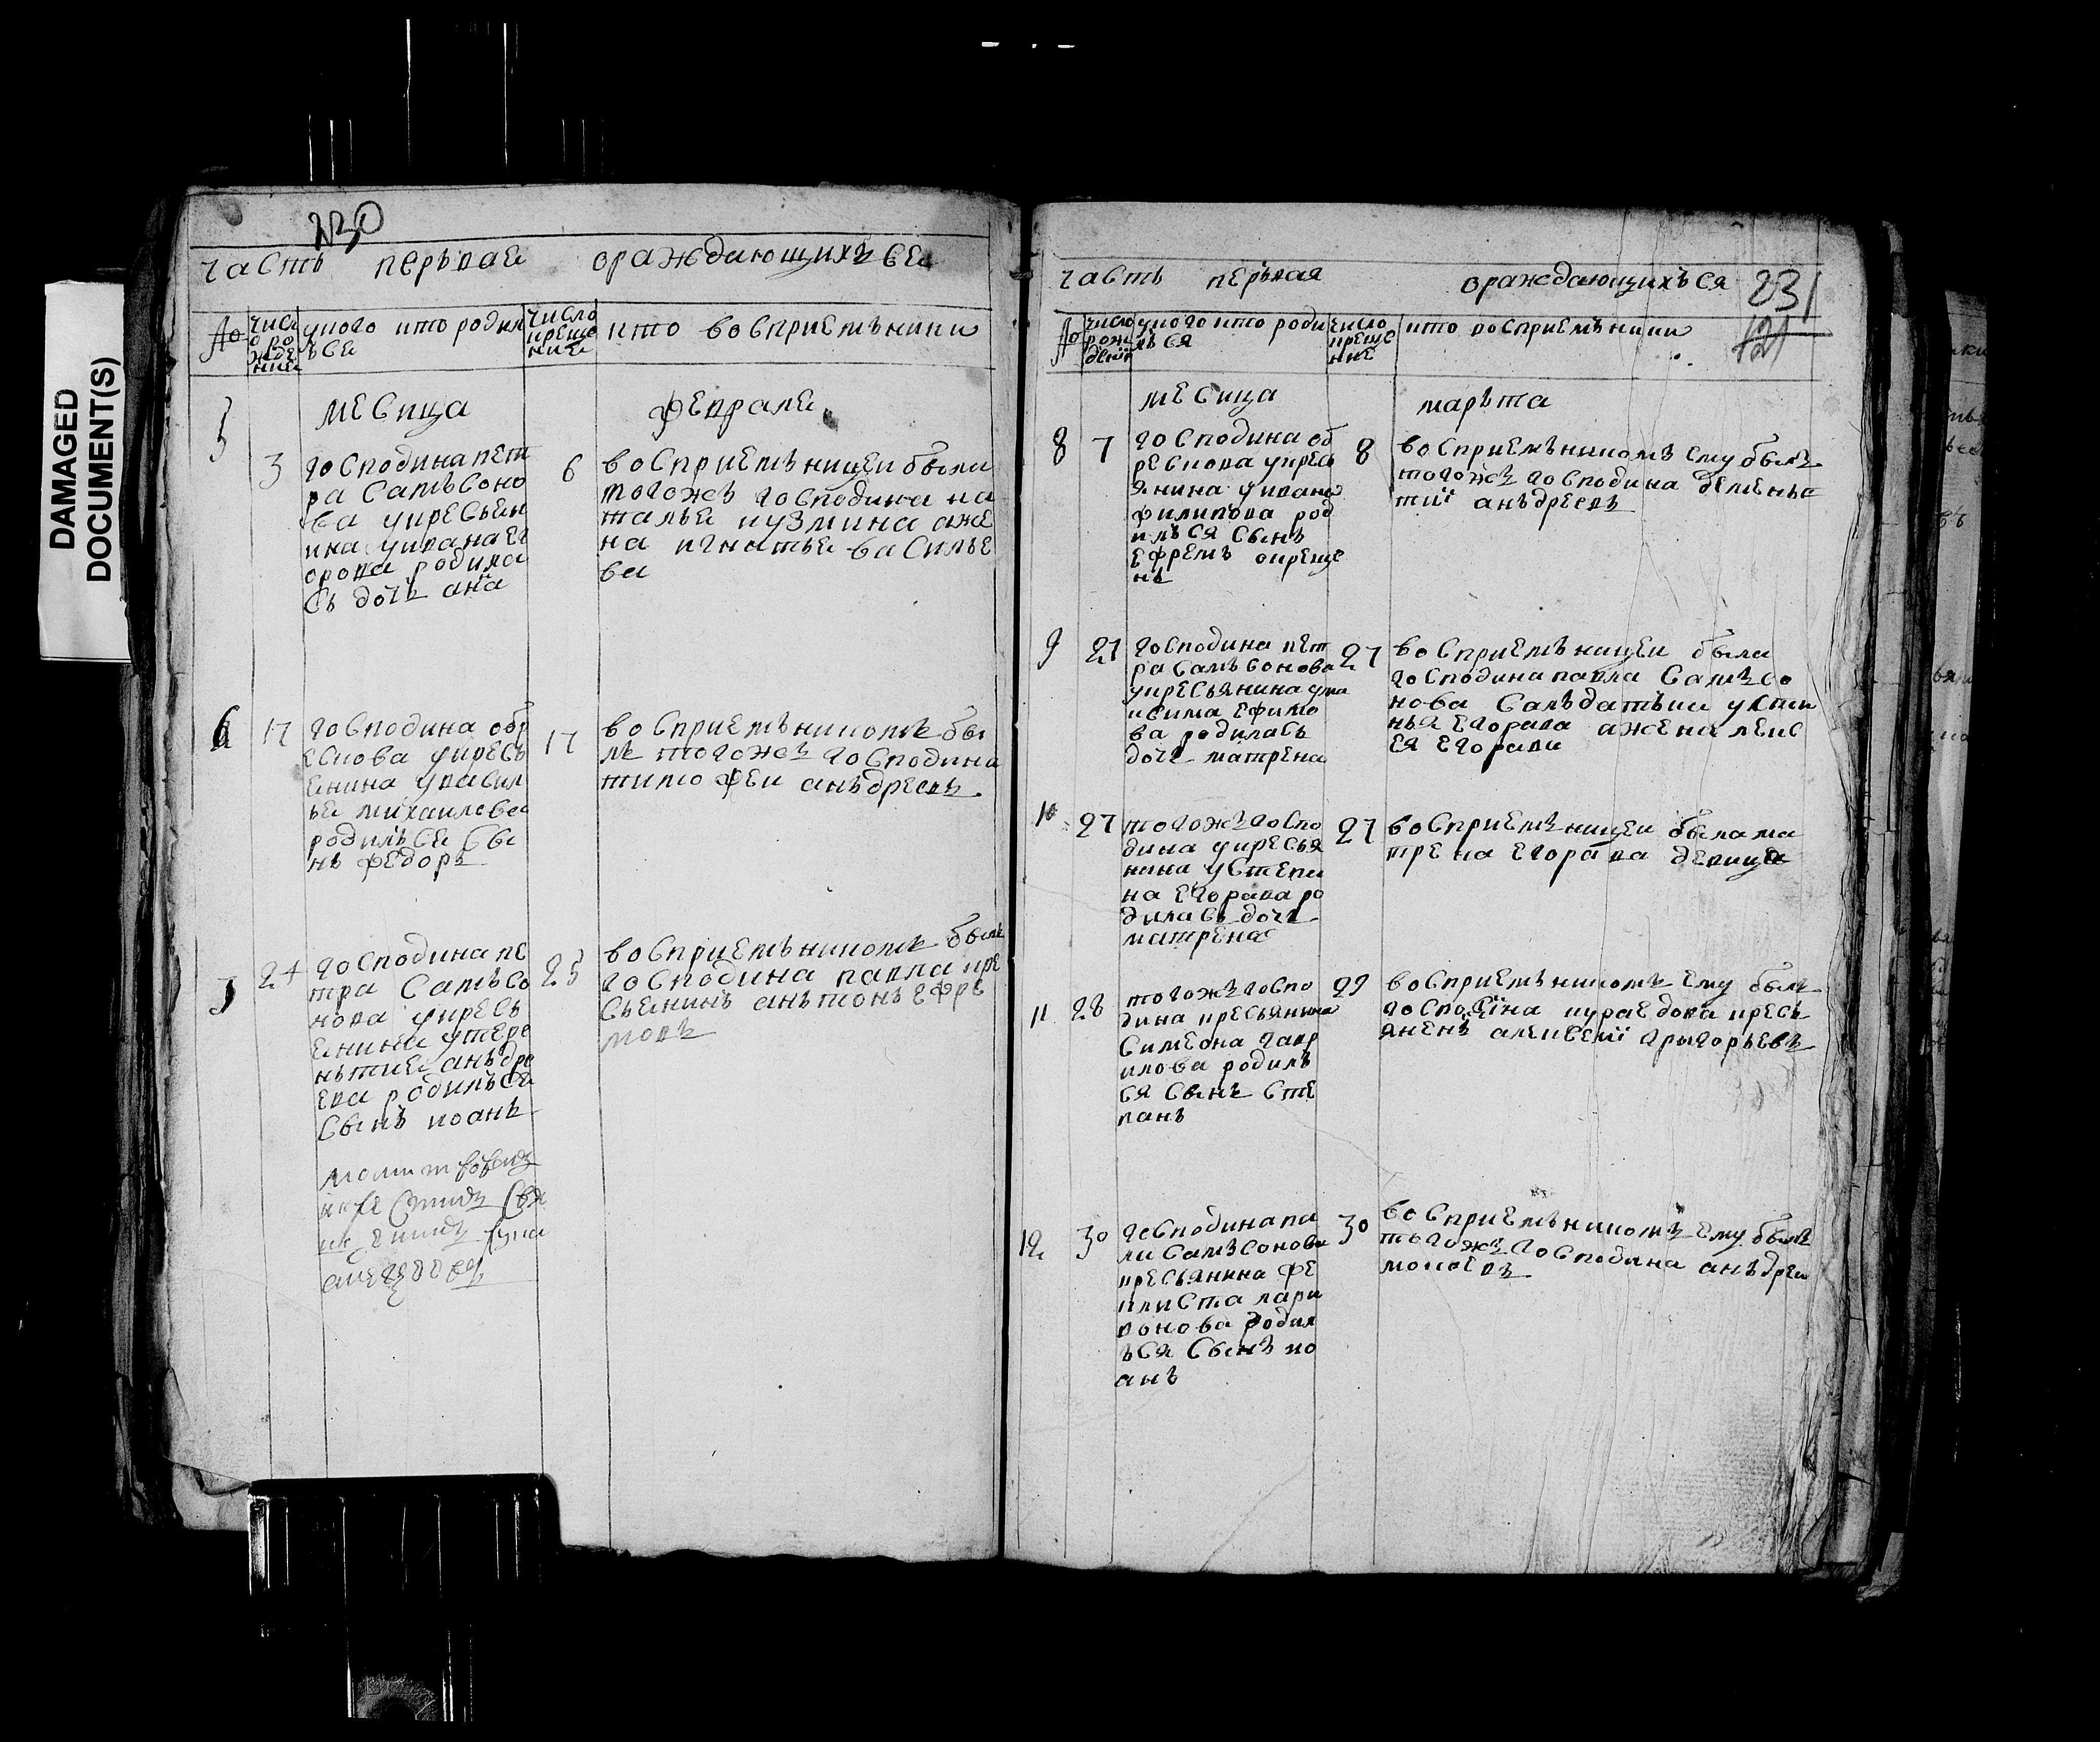 DAMAGED
DOCUMENT(S)
230
часть перьвае ораждающихъсе
№
числ
о ро
жде
ние
укого кто родил
ъсе
число
креще
ние
кто восприемъники
месица февраля
5
3
господина пет
ра самъсоно
ва укресьен
ина уивана ег
орова родила
съ дочь ана
6
восприемъницеи была
тогожъ господина на
талье кузмина аже
на игнатье василье
ва
6
17
господина обр
ескова укресь
енина увасил
ье михаилова
родилъсе сы
нъ федоръ
17
восприемъникомъ бы
лъ тогожъ господина
тимофеи анъдреевъ
24
господина пе
тра самъсо
нова укресъ
енина утере
ньтие анъдре
ева родилъсе
сынъ иоанъ
25
восприемъникомъ былъ
господина павла кре
сьенинъ анътонъ ефре
мовъ
часть перьвая ораждающихъся
231
121
№
число
рож
дения
укого кто роди
лъся
число
креще
ние
кто восприемъники
месица марьта
8
7
господина об
рескова укресь
янина уивана
филипова род
илъся сынъ
ефремъ окреще
нъ
8
восприемъникомъ ему былъ
тогожъ господина дементь
тии анъдреевъ
9
27
господина пет
ра самъсонова
укресьянина ума
ксима ефимо
ва родиласъ
дочь матрена
27
восприемъницеи была
господина павла самъсо
нова салъдатъки усти
нья егорава ажена лекс
ея егорави
10
27
тогожъ госпо
дина укресья
нина устепа
на егорава ро
диласъ дочь
матрена
27
восприемъницеи была ма
трена егорава девица
11
28
тогожъ госпо
дина кресьянина
симеона гавр
илова родилъ
ся сынъ сте
панъ
29
восприемъникомъ ему былъ
господина кураедова кресь
яненъ алексеи григорьевъ
12
30
господина па
вла самъсонова
кресьянина фе
иклиста лари
вонова родил
ъся сынъ ио
анъ
30
восприемъникомъ ему былъ
тогожъ господина анъдреи
мокеевъ